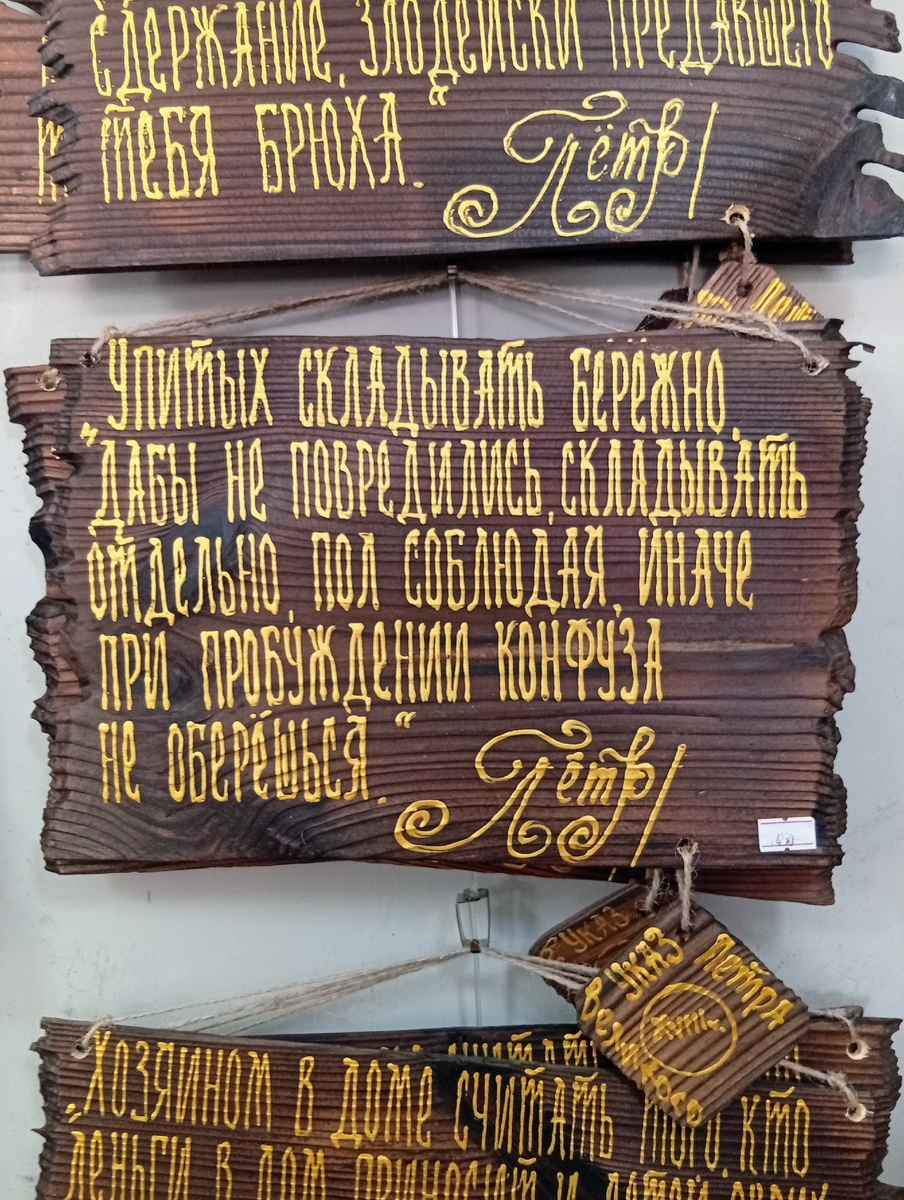 СДЕРЖАНИЕ, ЗЛОДЕЙСКИ ПРЕДАВШЕГО
ТЕБЯ БРЮХА."
Пётр I
"УПИТЫХ СКЛАДЫВАТЬ БЕРЁЖНО,
ДАБЫ НЕ ПОВРЕДИЛИСЬ, СКЛАДЫВАТЬ
ОТДЕЛЬНО, ПОЛ СОБЛЮДАЯ, ИНАЧЕ
ПРИ ПРОБУЖДЕНИИ КОНФУЗА
НЕ ОБЕРЁШЬСЯ."
Пётр I
450
УКАЗ
УКАЗ Петра
Великого
"ХОЗЯИНОМ В ДОМЕ СЧИТАТЬ ТОГО, КТО
ДЕНЬГИ В ДОМ ПРИНОСИТ И